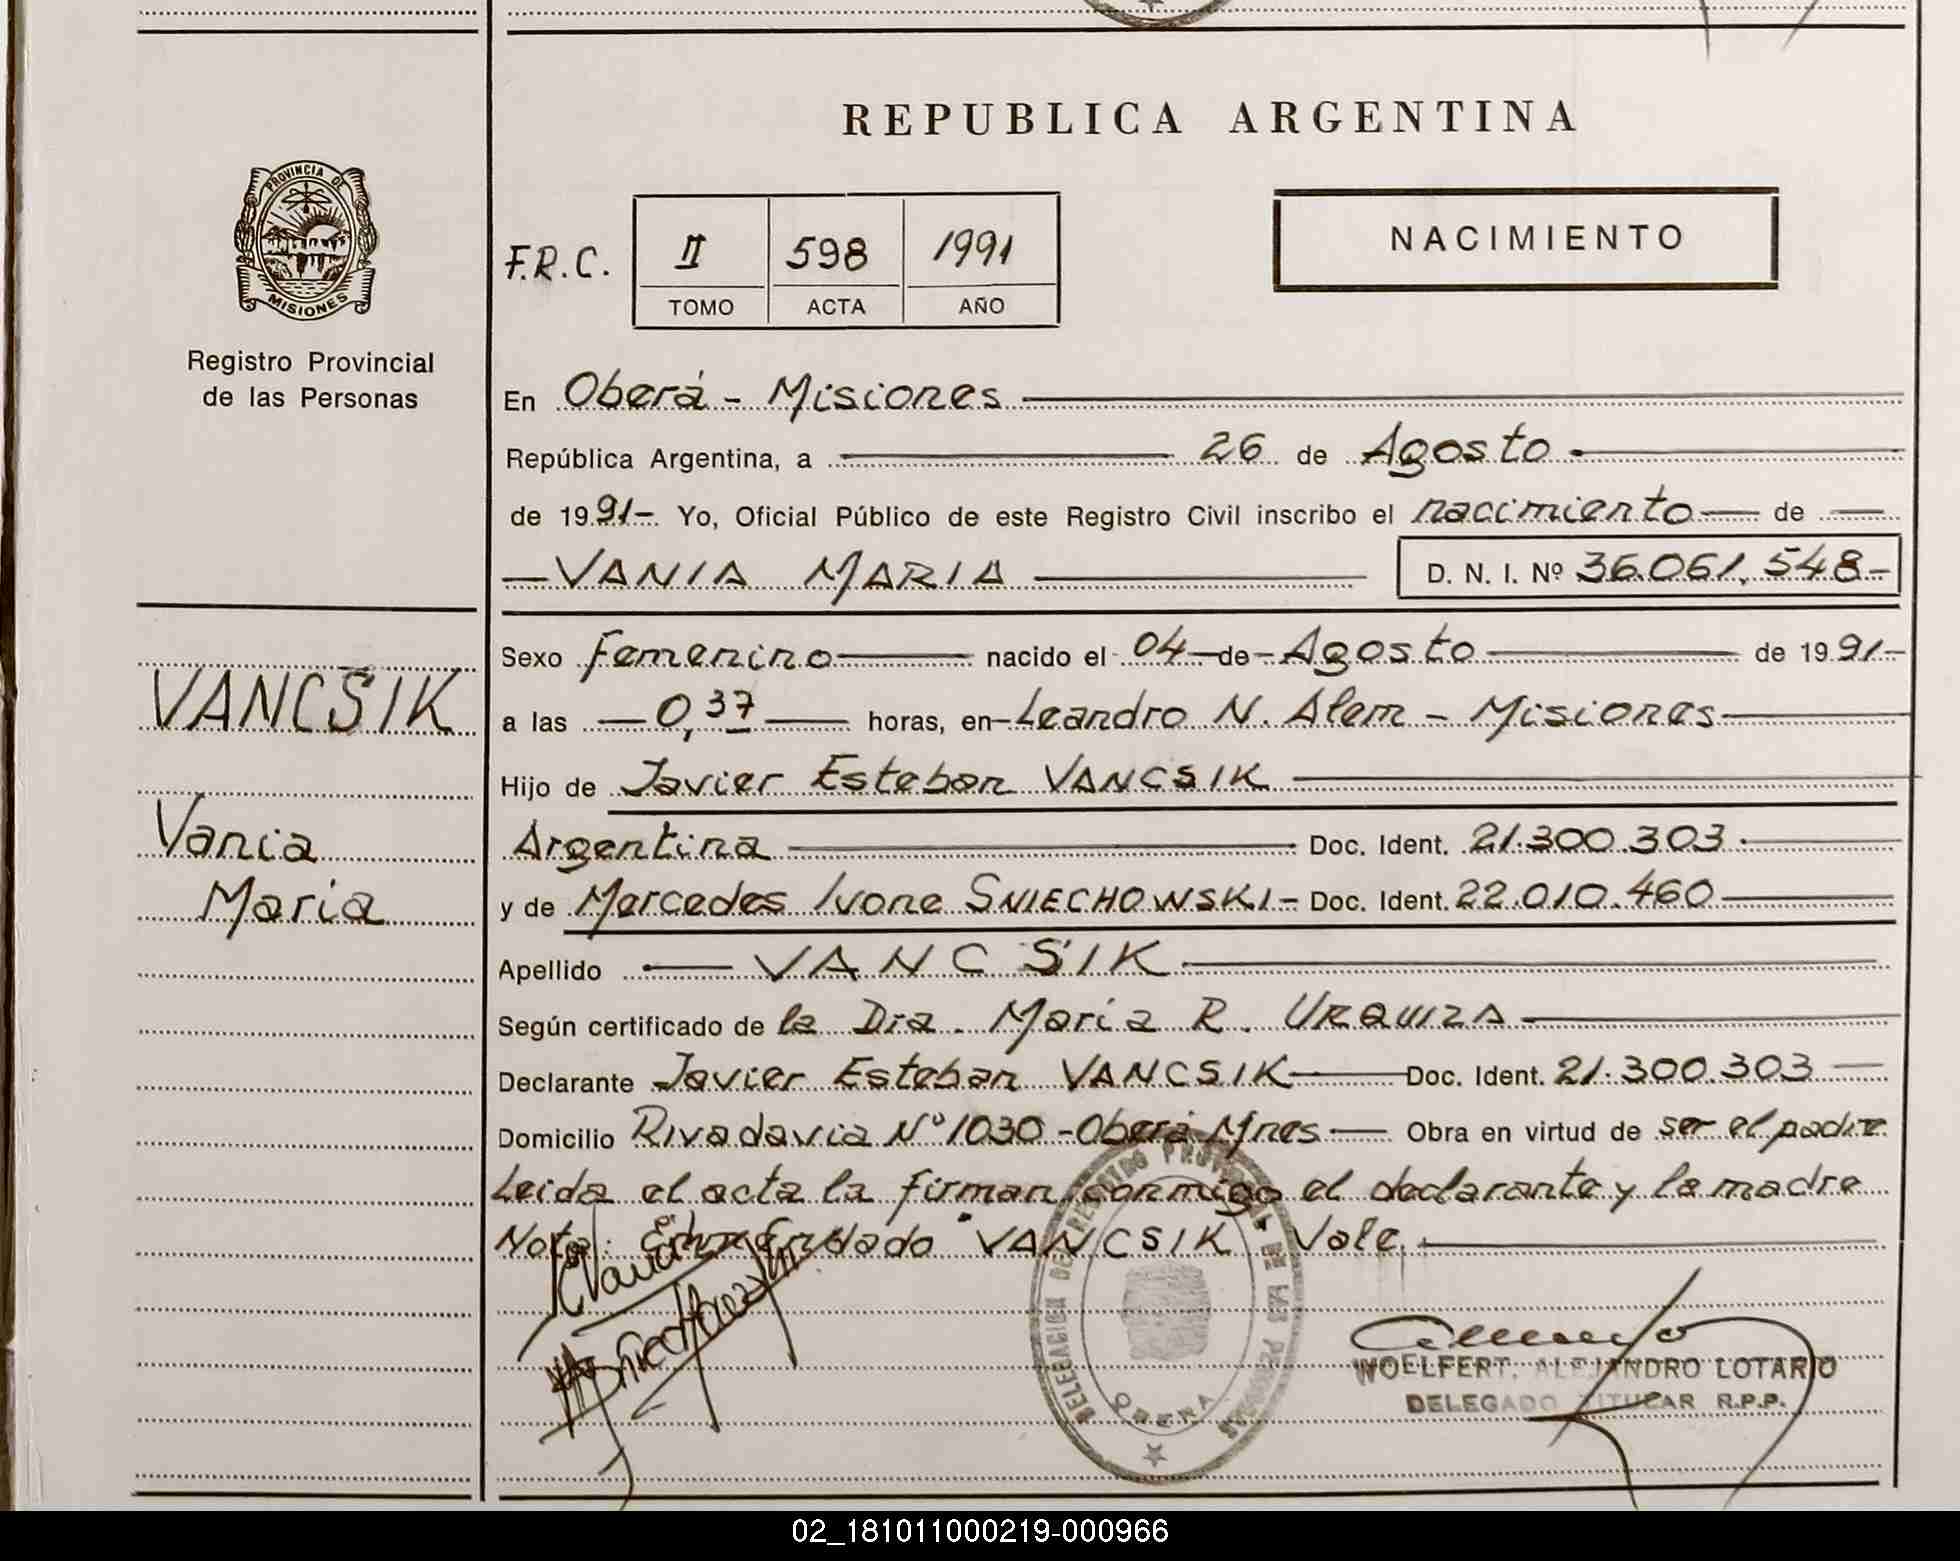 REPUBLICA ARGENTINA
PROVINCIA DE
MISIONES
Registro Provincial
de las Personas
F.R.C. II 598 1991
TOMO ACTA AÑO
NACIMIENTO
En Oberá - Misiones
República Argentina, a 26 de Agosto
de 1991- Yo, Oficial Público de este Registro Civil inscribo el nacimiento de
VANIA MARIA D. N. I. Nº 36.061.548-
VANCSIK
Vania
Maria
Sexo femenino nacido el 04 de Agosto de 1991-
a las 0,37 horas, en Leandro N. Alem - Misiones
Hijo de Javier Esteban VANCSIK
Argentina Doc. Ident. 21.300.303
y de Mercedes Ivone SNIECHOWSKI- Doc. Ident. 22.010.460
Apellido VANCSIK
Según certificado de la Dra. María R. URQUIZA
Declarante Javier Esteban VANCSIK Doc. Ident. 21.300.303
Domicilio Rivadavia Nº 1030 -Oberá Mnes Obra en virtud de ser el padre
Leida el acta la firman conmigo el declarante y la madre
Nota: Enmendado "VANCSIK" Vale.
DELEGACION DEL REGISTRO PROVINCIAL DE LAS PERSONAS
OBERA
WOELFERT, ALEJANDRO LOTARIO
DELEGADO TITULAR R.P.P.
02_181011000219-000966